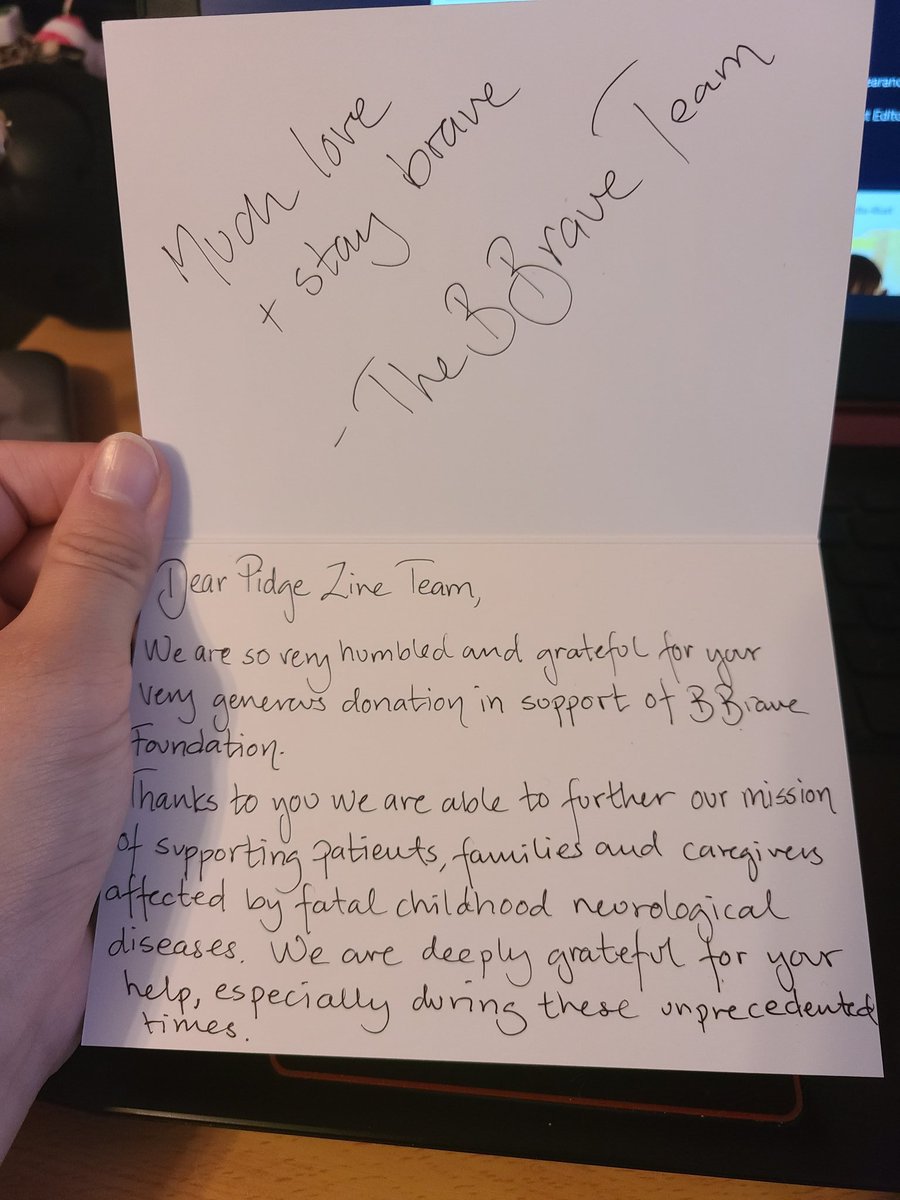 Much love
+ stay brave
- The BBrave Team
Dear Pidge Zine Team,
We are so very humbled and grateful for your
very generous donation in support of BBrave
Foundation.
Thanks to you we are able to further our mission
of supporting patients, families and caregivers
affected by fatal childhood neurological
diseases. We are deeply grateful for your
help, especially during these unprecedented
times.